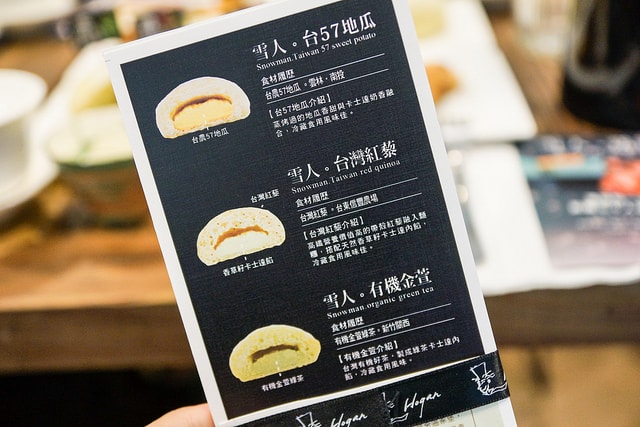 雪人。台57地瓜
Snowman.Taiwan 57 sweet potato
食材履歷
台農57地瓜。雲林、南投
【台57地瓜介紹】
窯烤過的地瓜香甜與卡士達奶香融
合,冷藏食用風味佳。
台農57地瓜
雪人。台灣紅藜
Snowman.Taiwan red quinoa
食材履歷
台灣紅藜。台東信豐農場
【台灣紅藜介紹】
高纖營養價值高的帶殼紅藜融入麵
糰,搭配天然香草籽卡士達內餡,
冷藏食用風味佳。
台灣紅藜
香草籽卡士達餡
雪人。有機金萱
Snowman.organic green tea
食材履歷
有機金萱綠茶。新竹關西
【有機金萱介紹】
台灣有機好茶,製成綠茶卡士達內
餡,冷藏食用風味。
有機金萱綠茶
Hogan
Hogan